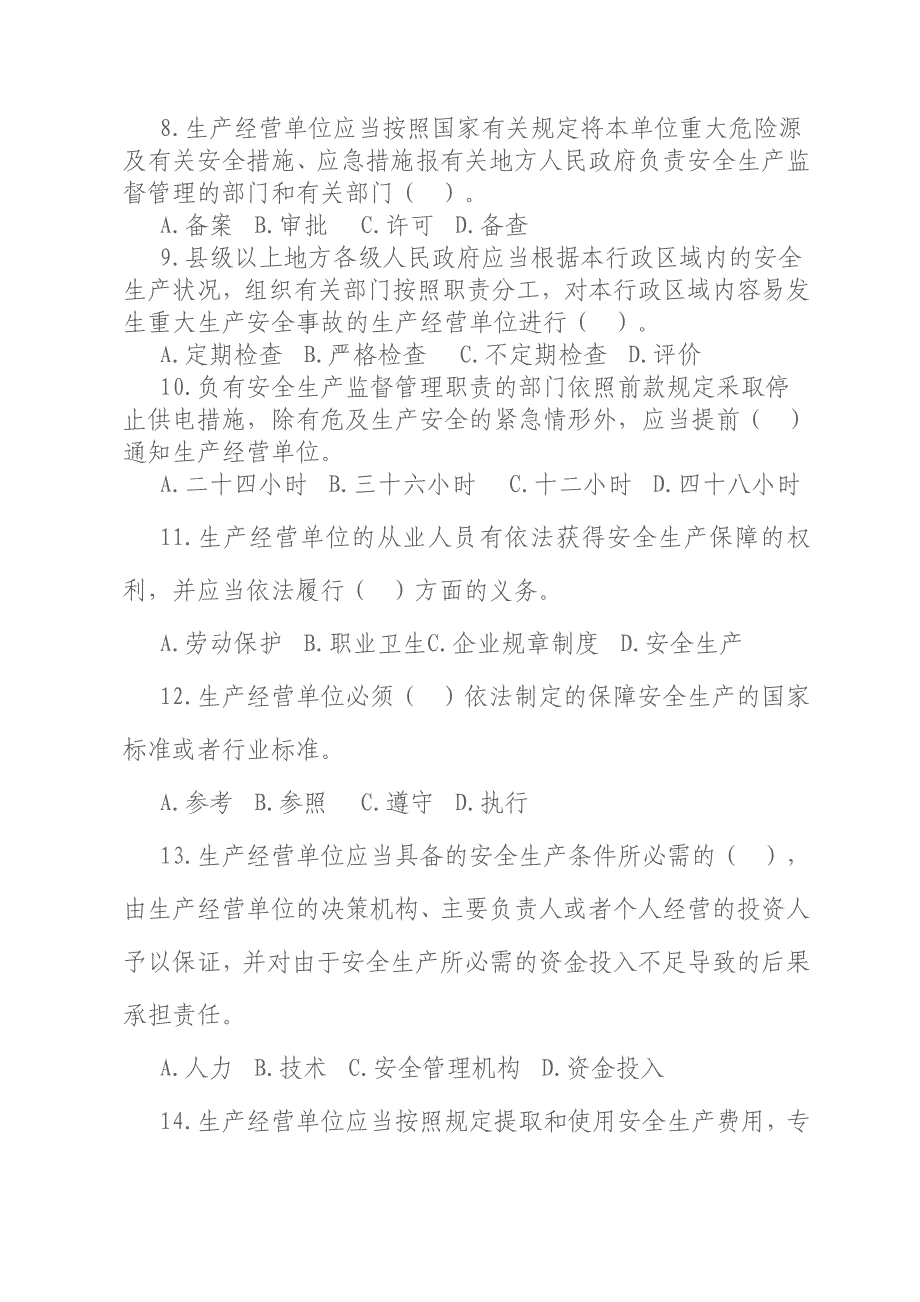 8.生产经营单位应当按照国家有关规定将本单位重大危险源
及有关安全措施、应急措施报有关地方人民政府负责安全生产监
督管理的部门和有关部门（ ）。
A.备案 B.审批 C.许可 D.备查
9.县级以上地方各级人民政府应当根据本行政区域内的安全
生产状况，组织有关部门按照职责分工，对本行政区域内容易发
生重大生产安全事故的生产经营单位进行（ ）。
A.定期检查 B.严格检查 C.不定期检查 D.评价
10.负有安全生产监督管理职责的部门依照前款规定采取停
止供电措施，除有危及生产安全的紧急情形外，应当提前（ ）
通知生产经营单位。
A.二十四小时 B.三十六小时 C.十二小时 D.四十八小时
11.生产经营单位的从业人员有依法获得安全生产保障的权
利，并应当依法履行（ ）方面的义务。
A.劳动保护 B.职业卫生C.企业规章制度 D.安全生产
12.生产经营单位必须（ ）依法制定的保障安全生产的国家
标准或者行业标准。
A.参考 B.参照 C.遵守 D.执行
13.生产经营单位应当具备的安全生产条件所必需的（ ），
由生产经营单位的决策机构、主要负责人或者个人经营的投资人
予以保证，并对由于安全生产所必需的资金投入不足导致的后果
承担责任。
A.人力 B.技术 C.安全管理机构 D.资金投入
14.生产经营单位应当按照规定提取和使用安全生产费用，专